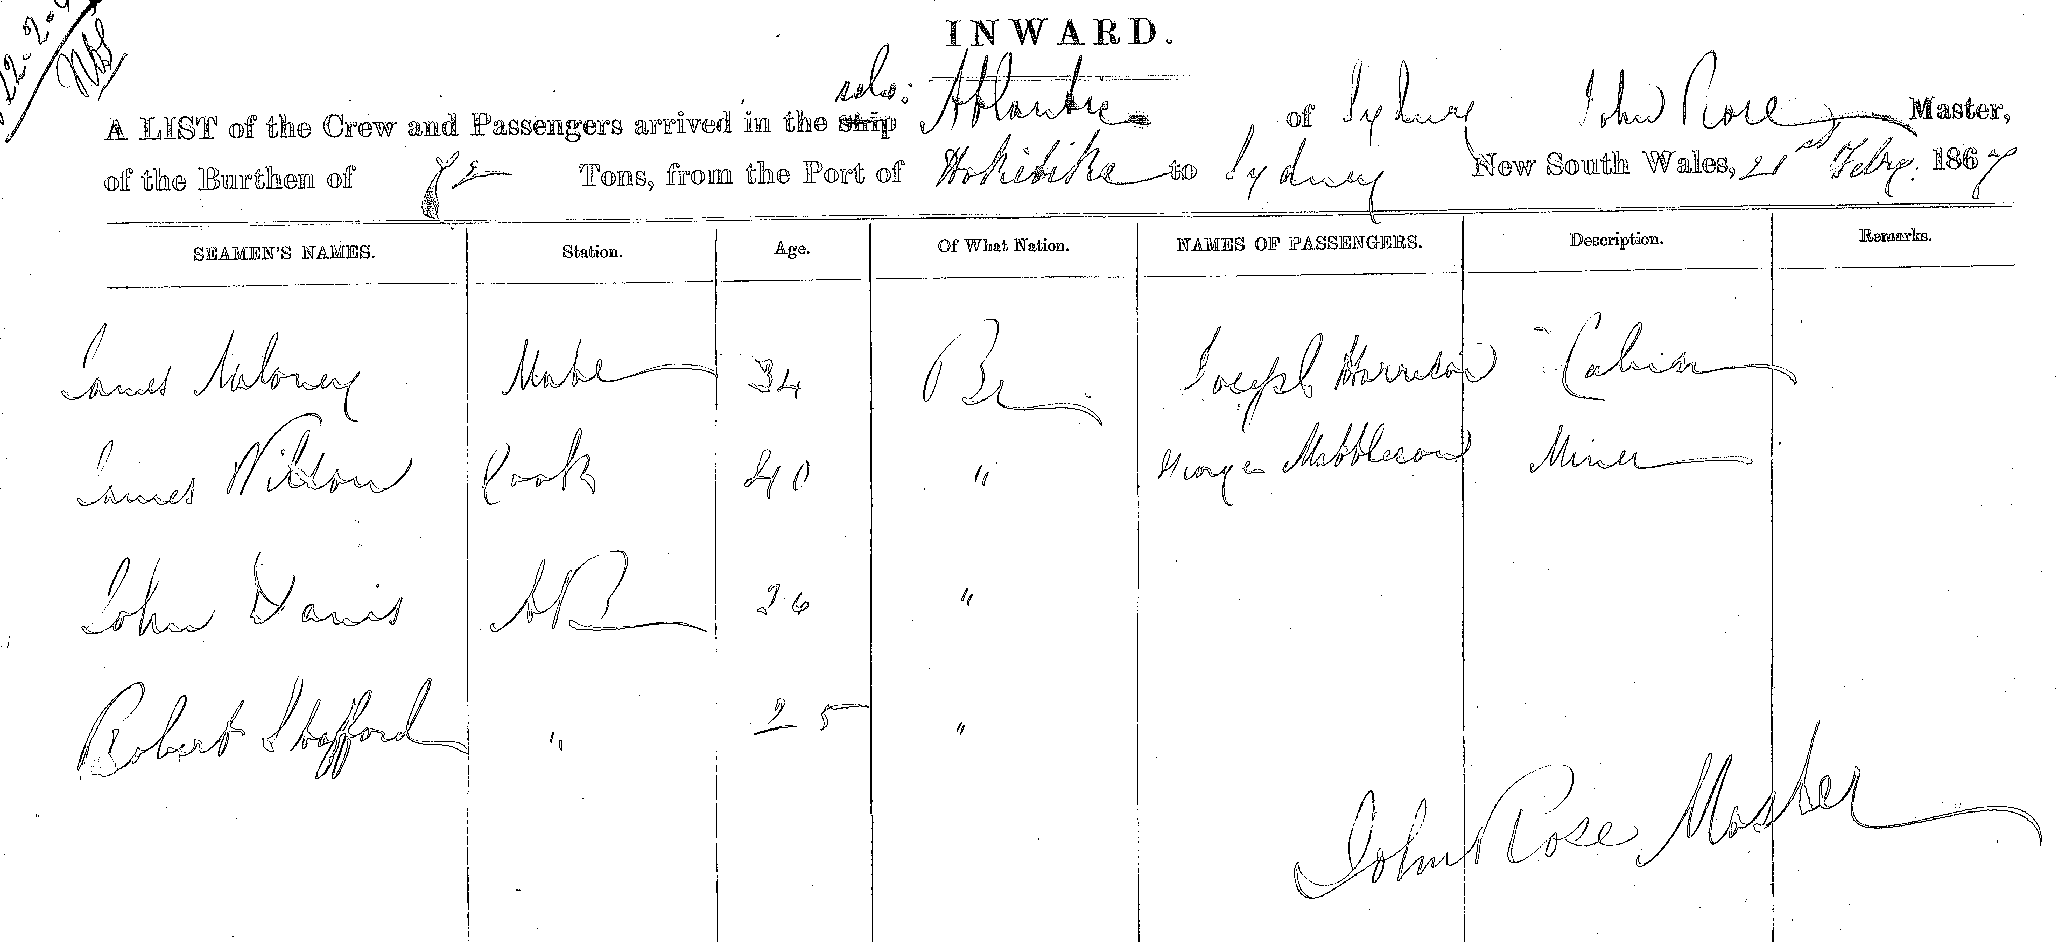 22-2-
INWARD.
A LIST of the Crew and Passengers arrived in the ship Atlantic of Sydney John Rose Master,
of the Burthen of 82 Tons, from the Port of Hokitika to Sydney New South Wales, 21st Febry. 1867
SEAMEN'S NAMES. Station. Age. Of What Nation. NAMES OF PASSENGERS. Description. Remarks.
James Maloney Mate 34 Br Joseph Harrison Cabin
James Wilson Cook 40 " George Miner
John Davis AB 26 "
Robert Stafford " 25 "
John Rose Master